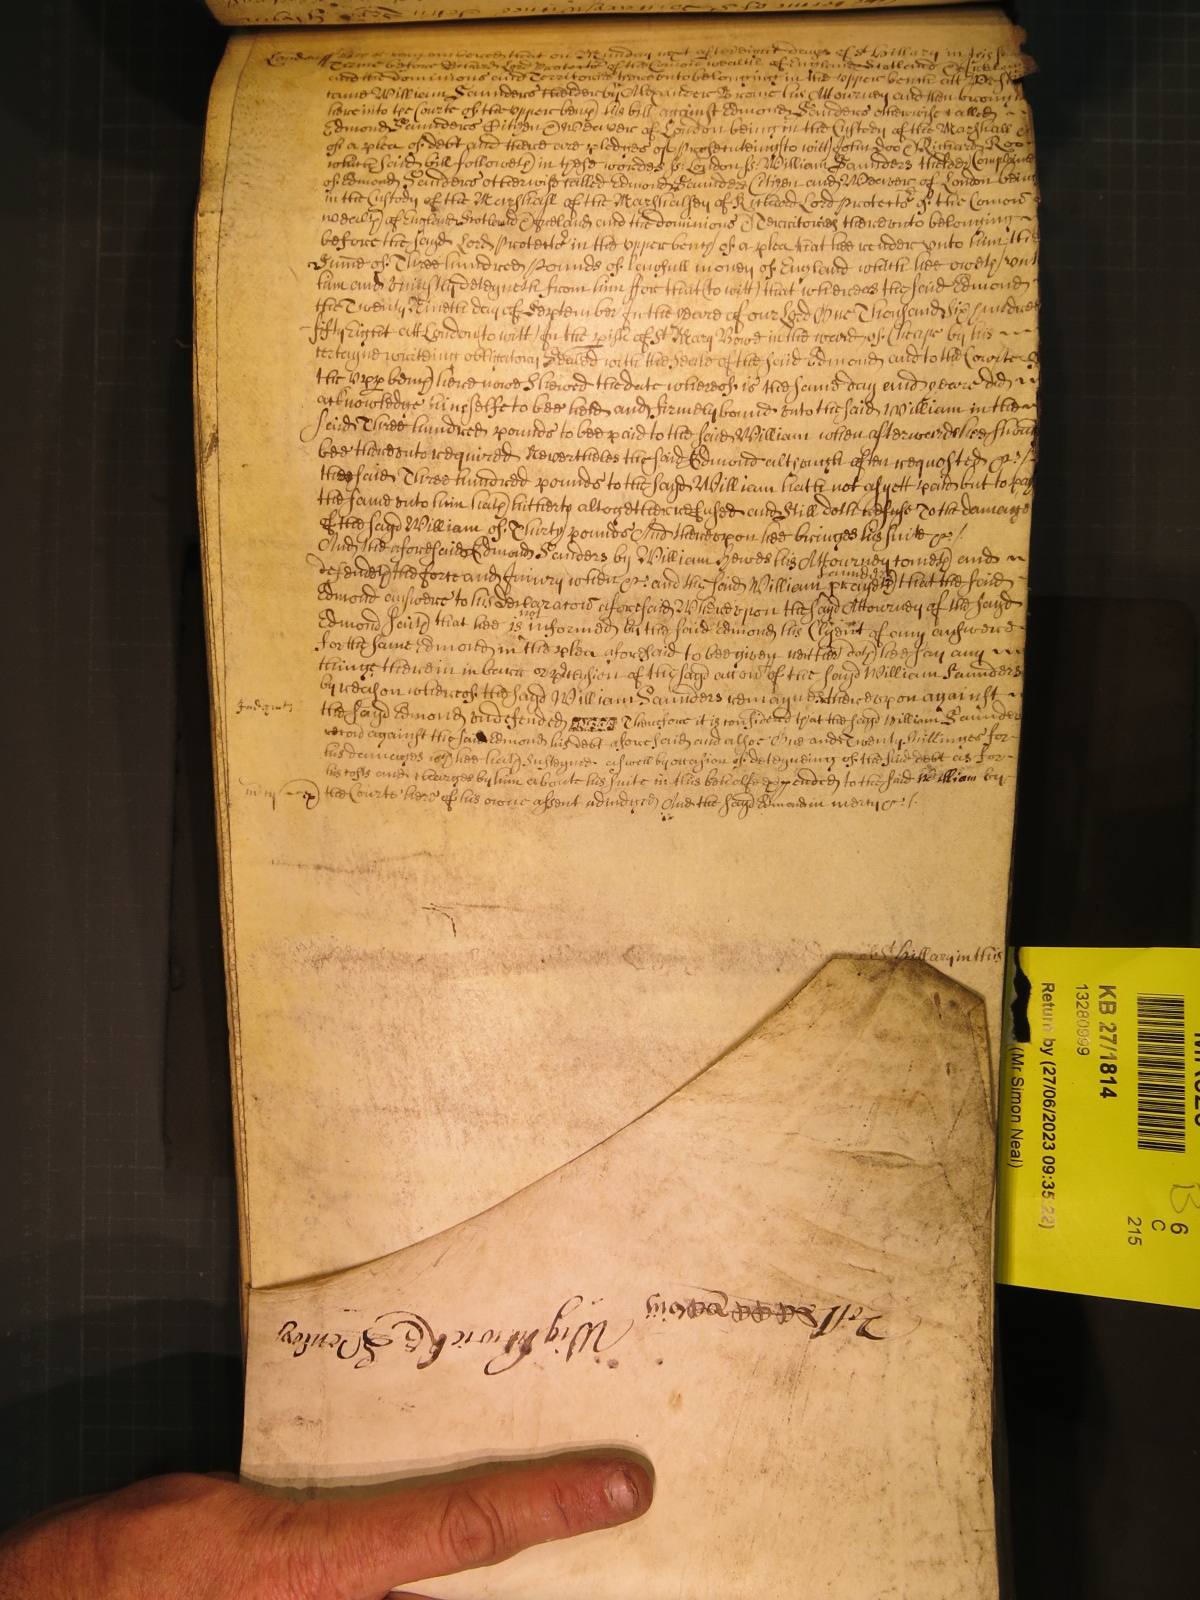 London ss Bee it remembred that on Munday next after eight dayes of St Hillary in this same
Terme before Richard Lord Protector of the Comon wealth of England Scotland & Ireland
and the dominions and Territories thereunto belonging in the upper bench att
came William Saunders the elder by Alexander Browne his Attourney and then brought
here into the Courte of the upper bench his bill against Edmond Saunders otherwise called
Edmond Saunders Citizen & Weaver of London being in the Custody of the Marshall &c
of a plea of debt and there are pledges of prosecuteing to witt John Doo & Richard Roo
which said bill followeth in these wordes ss London ss William Saunders the elder Complaines
of Edmond Saunders otherwise called Edmond Saunders Citizen and Weaver of London being
in the Custody of the Marshall of the Marshalsey of Richard Lord Protector of the Comon
wealth of England Scotland & Ireland and the dominions & Territories thereunto belonging
before the sayd Lord Protector in the upper bench of a plea that hee render unto him the
Sume of Three hundred pounds of lawfull money of England which hee oweth unto
him and uniustly deteyneth from him ffor that (to witt) that whereas the said Edmond
the Twenty Nineth day of September In the yeare of our Lord One Thousand Six hundred
fifty eight att London to witt In the pish of St Mary Bowe in the ward of Cheape by his
certeyne writeing obligatory Sealed with the Seale of the said Edmond and to the Courte
the upp bench here nowe Shewed the date whereof is the same day and yeare did
acknowledge himselfe to bee held and firmely bound unto the said William in the
said Three hundred pounds to bee paid to the said William when afterwards hee should
bee thereunto required Neverthelesse the said Edmond although often requested &c
the said Three hundred pounds to the sayd William hath not as yett paid but to pay
the same unto him hath hitherto altogether refused and still doth refuse To the damage
of the sayd William of Thirty pounds And thereupon hee bringes his suite &c
And the aforesaid Edmond Saunders by William Hewes his Attourney cometh and
defendeth the force and Iniury when &c and the said William Saunders prayeth that the said
Edmond answere to his Declaracon aforesaid Whereupon the sayd Attourney of the sayd
Edmond saith that hee is not informed by the said Edmond his Clyent of any answere
for the same Edmond in the plea aforesaid to bee given neither doth hee say any
thinge therein in barr or preclusion of the sayd accon of the sayd William Saunders
by reason whereof the sayd William Saunders remaynes thereupon against
Judgmt
the sayd Edmond undefended Therefore it is considered that the sayd William Saunders
recover against the said Edmond his debt aforesaid and alsoe One and Twenty shillinges for
his damages wch hee hath susteyned aswell by occasion of deteyneing of the said debt as for
his costs and charges by him about his suite in this behalfe expended to the said William by
mcy
the Courte here of his owne assent adiudged And the sayd Edmond in mercy &c
of St Hillary in this
KB 27/1814
13280999
Return by (27/06/2023 09:35:22)
(Mr Simon Neal)
6
C
215
Wightwick